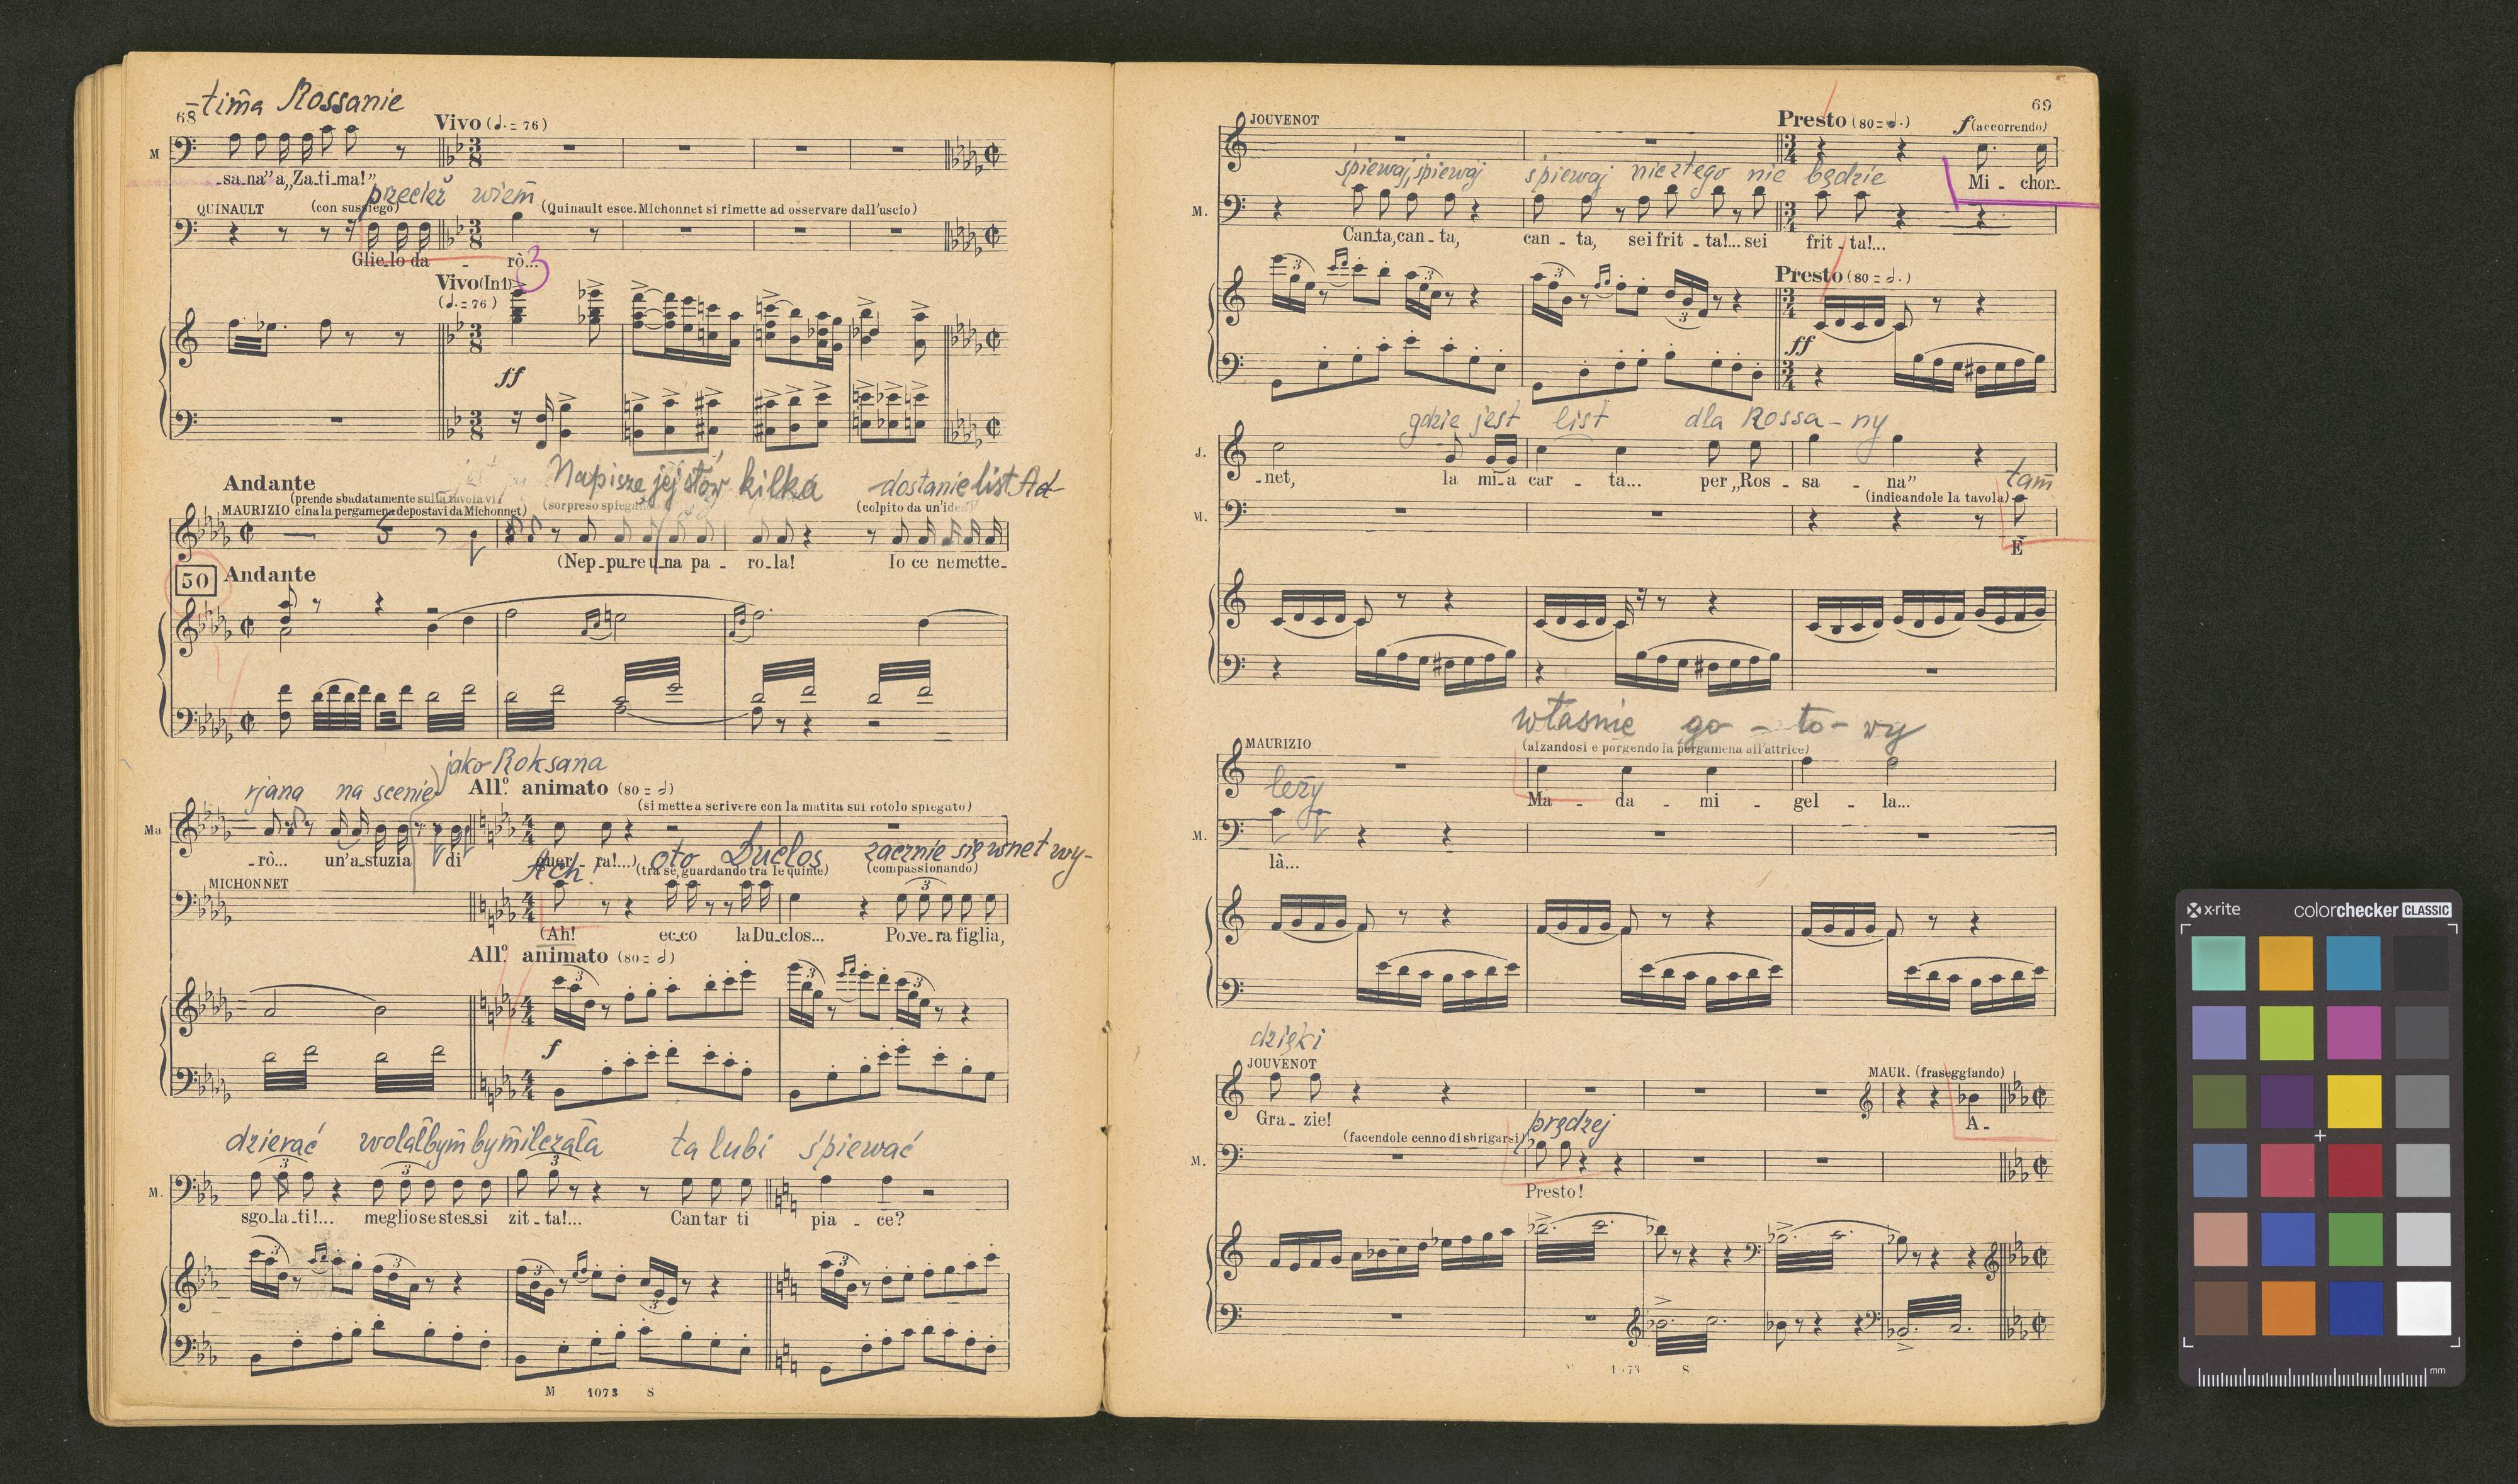 -tima Rossanie
68
Vivo (𝅗𝅥. = 76)
M
-sa-na” a „Za-ti-ma!”
przecież wiem
QUINAULT (con sussiego) (Quinault esce. Michonnet si rimette ad osservare dall'uscio)
Glie-lo da - rò...
3
Vivo (In 1)
(𝅗𝅥. = 76)
ff
Napiszę jej słów kilka dostanie list Ad-
Andante
(prende sbadatamente sulla tavola vi-
MAURIZIO cina la pergamena depostavi da Michonnet) (sorpreso spiegan (colpito da un'idea)
(Nep-pu-re u-na pa - ro-la! Io ce ne mette-
50 Andante
jako Roksana
rjana na scenie
All.º animato (80 = 𝅗𝅥)
(si mette a scrivere con la matita sul rotolo spiegato)
Ma
-rò... un'a-stuzia di guer - ra!...)
Ach! oto Duclos zacznie się wnet wy-
MICHONNET (tra sé, guardando tra le quinte) (compassionando)
(Ah! ec-co la Du-clos... Po-ve-ra figlia,
All.º animato (80 = 𝅗𝅥)
f
dzierać wolałbym by milczała ta lubi śpiewać
M.
sgo-la-ti!... meglio se stes-si zit-ta!... Cantar ti pia - ce?
M 1073 S
69
JOUVENOT Presto (80 = 𝅗𝅥.) f (accorrendo)
Mi - chon-
śpiewaj, śpiewaj śpiewaj nic złego nie będzie
M.
Can-ta, can-ta, can - ta, sei frit - ta!... sei frit - ta!...
Presto (80 = 𝅗𝅥.)
ff
gdzie jest list dla Rossa-ny
J.
-net, la mi-a car - ta... per „Ros - sa - na”
tam
(indicandole la tavola)
M.
È
własnie go - to - wy
MAURIZIO (alzandosi e porgendo la pergamena all'attrice)
Ma - da - mi - gel - la...
leży
M.
là...
dzięki
JOUVENOT MAUR. (fraseggiando)
Gra - zie! A-
prędzej
(facendole cenno di sbrigarsi)
M.
Presto!
1073 S
x·rite colorchecker CLASSIC
mm